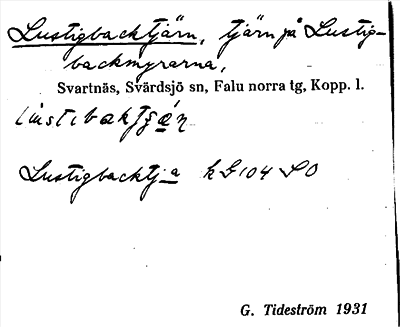 Lustigbacktjärn, tjärn på Lustig-
backmyrarna,
Svartnäs, Svärdsjö sn, Falu norra tg, Kopp. l.
Lustigbacktja k G 104 SO
G. Tideström 1931